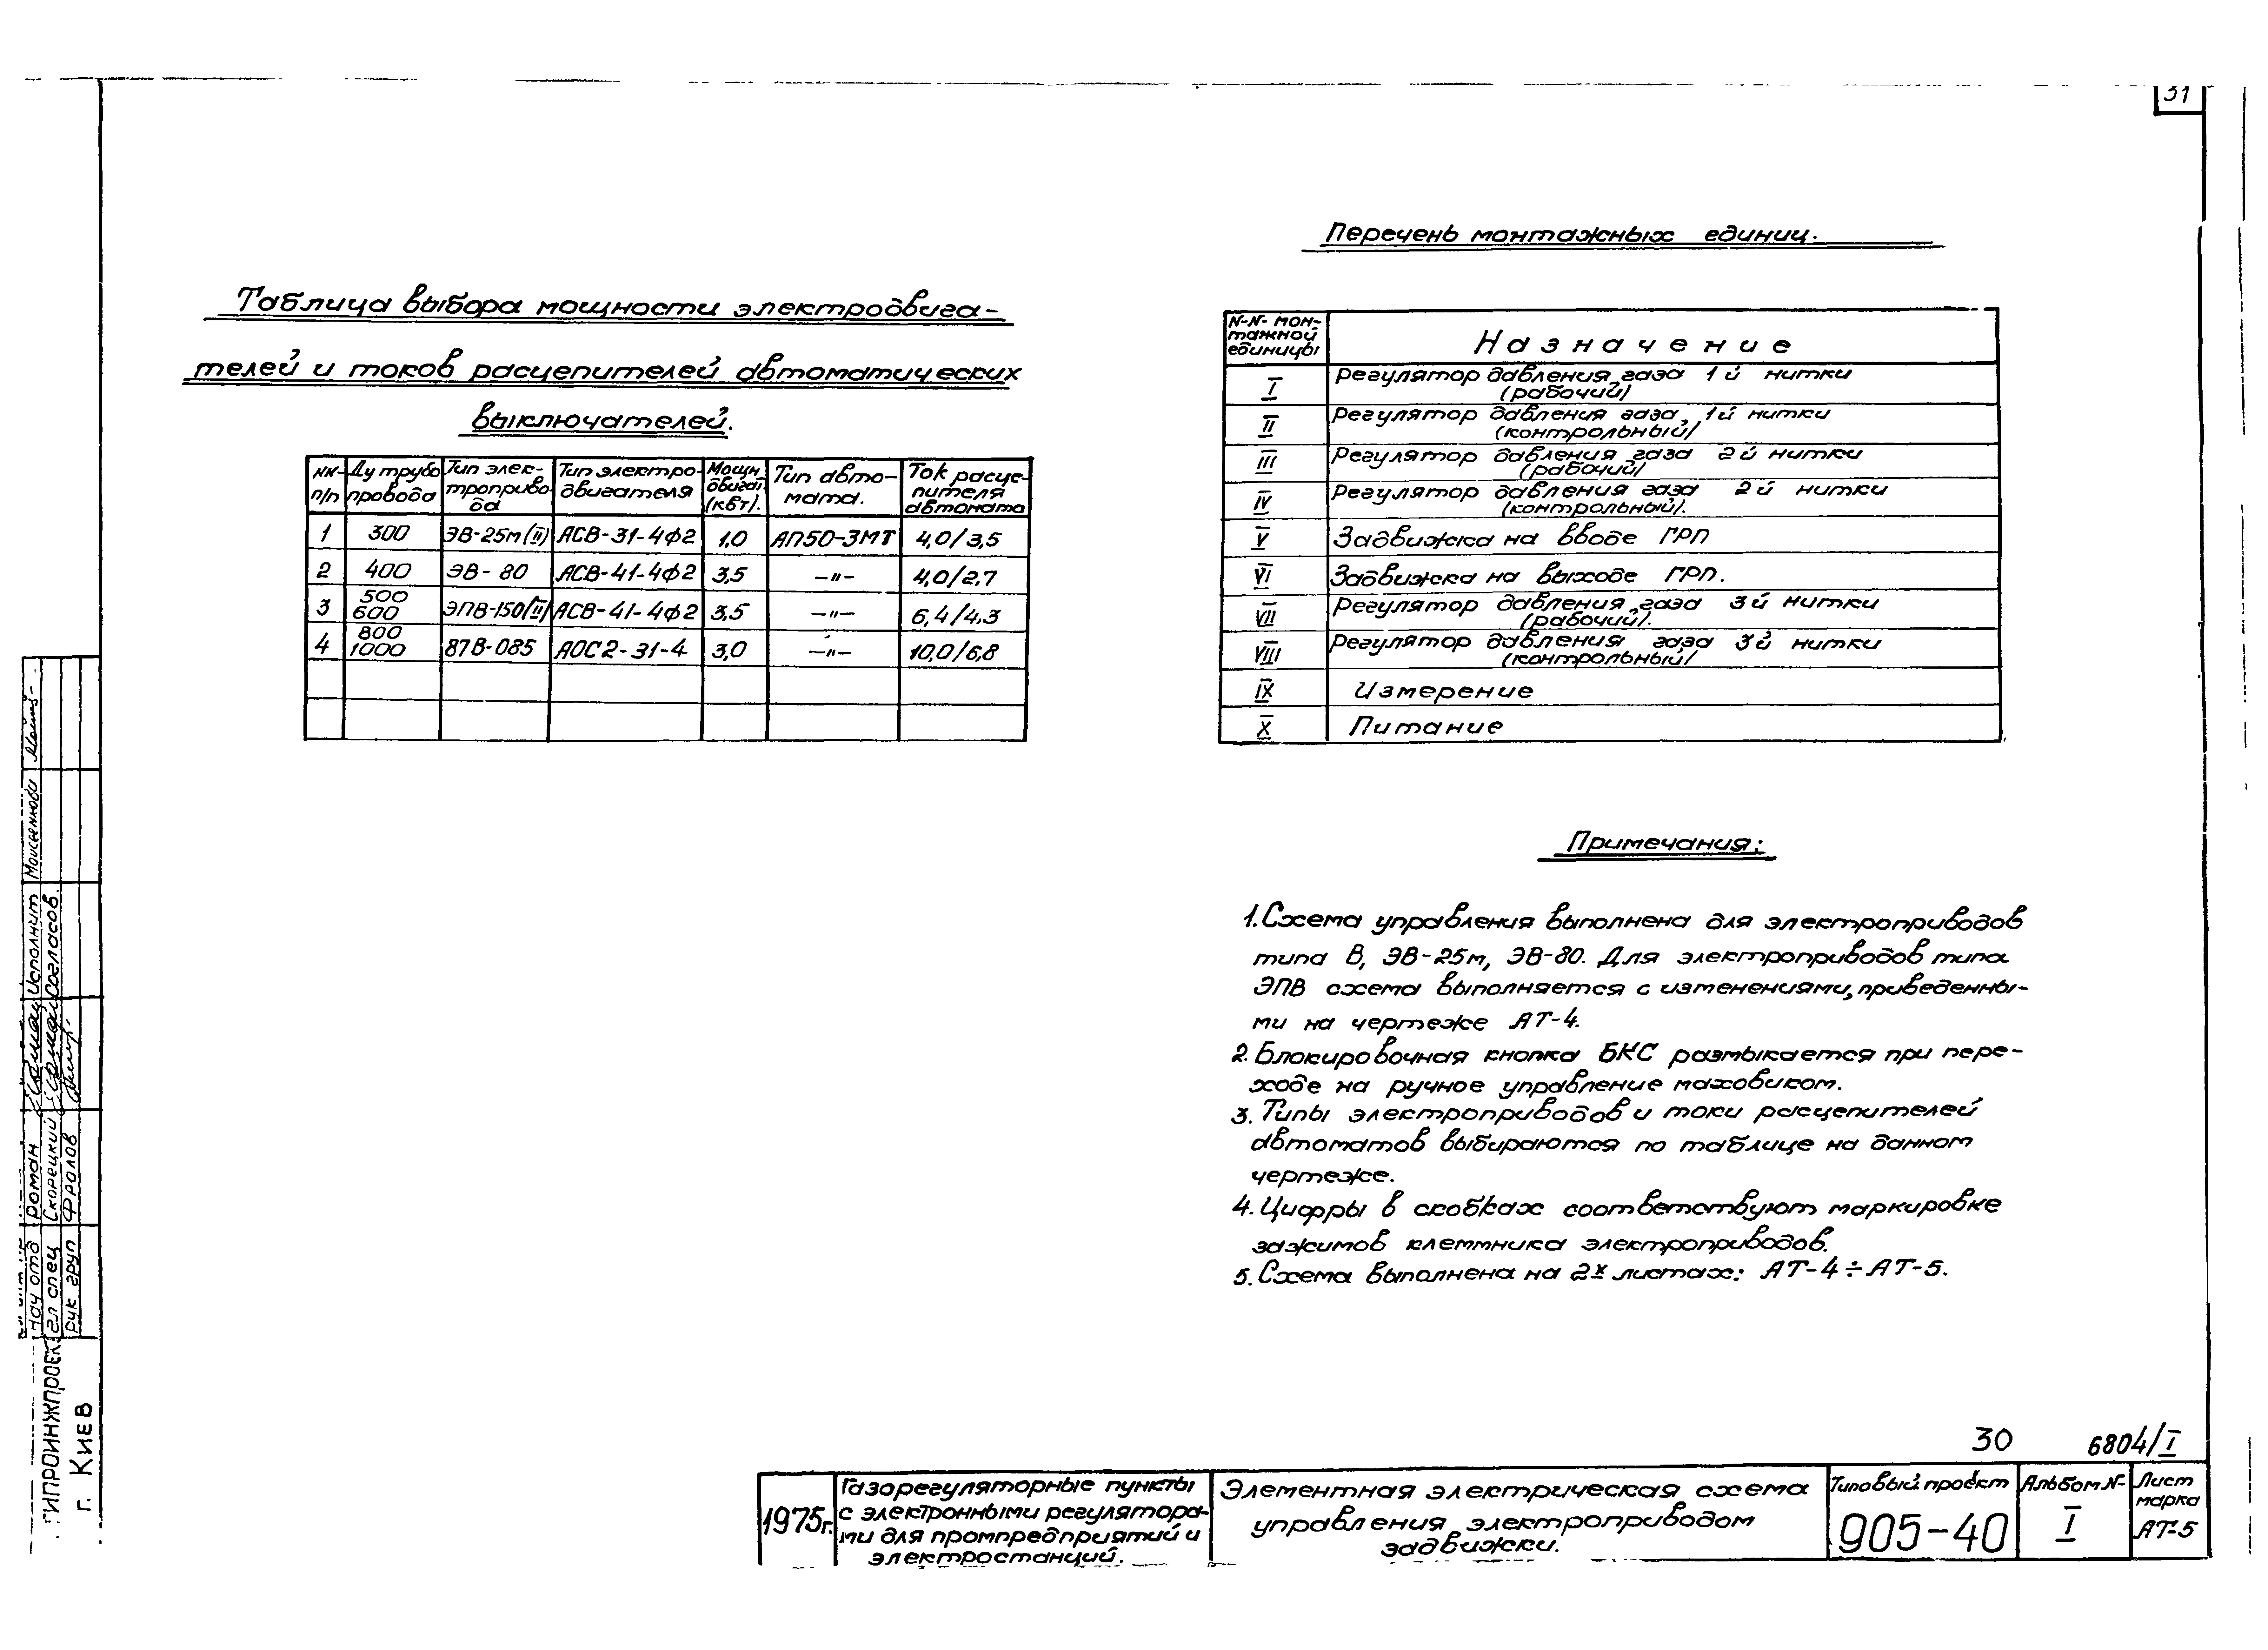 31
Таблица выбора мощности электродвига-
телей и токов расцепителей автоматических
выключателей.
NN- п/п | Ду трубо провода | Тип элек- троприво да | Тип электро- двигателя | Мощн. двигат. (квт). | Тип авто- мата. | Ток расце- пителя автомата
1 | 300 | ЭВ-25м(II) | АСВ-31-4ф2 | 1.0 | АП50-3МТ | 4,0/3,5
2 | 400 | ЭВ-80 | АСВ-41-4ф2 | 3,5 | —"— | 4,0/2,7
3 | 500 600 | ЭПВ-150/II/ | АСВ-41-4ф2 | 3,5 | —"— | 6,4/4,3
4 | 800 1000 | 87В-085 | АОС2-31-4 | 3,0 | —"— | 10,0/6,8
Перечень монтажных единиц.
N-N- мон- тажной единицы | Назначение
I | Регулятор давления газа 1й нитки (рабочий/
II | Регулятор давления газа 1й нитки (контрольный/
III | Регулятор давления газа 2й нитки (рабочий/
IV | Регулятор давления газа 2й нитки (контрольный/.
V | Задвижка на вводе ГРП
VI | Задвижка на выходе ГРП.
VII | Регулятор давления газа 3й нитки (рабочий/.
VIII | Регулятор давления газа 3й нитки (контрольный/
IX | Измерение
X | Питание
Примечания:
1. Схема управления выполнена для электроприводов
типа В, ЭВ-25м, ЭВ-80. Для электроприводов типа
ЭПВ схема выполняется с изменениями, приведенны-
ми на чертеже АТ-4.
2. Блокировочная кнопка БКС размыкается при пере-
ходе на ручное управление маховиком.
3. Типы электроприводов и токи расцепителей
автоматов выбираются по таблице на данном
чертеже.
4. Цифры в скобках соответствуют маркировке
зажимов клеммника электроприводов.
5. Схема выполнена на 2х листах: АТ-4÷АТ-5.
30 6804/I
1975г.
Газорегуляторные пункты
с электронными регулятора-
ми для промпредприятий и
электростанций.
Элементная электрическая схема
управления электроприводом
задвижки.
Типовый проект
905-40
Альбом N-
I
Лист
марка
АТ-5
ГИПРОИНЖПРОЕКТ
г. Киев
Нач отд Роман Исполнит
Гл спец Скорецкий Согласов.
Рук груп Фролов